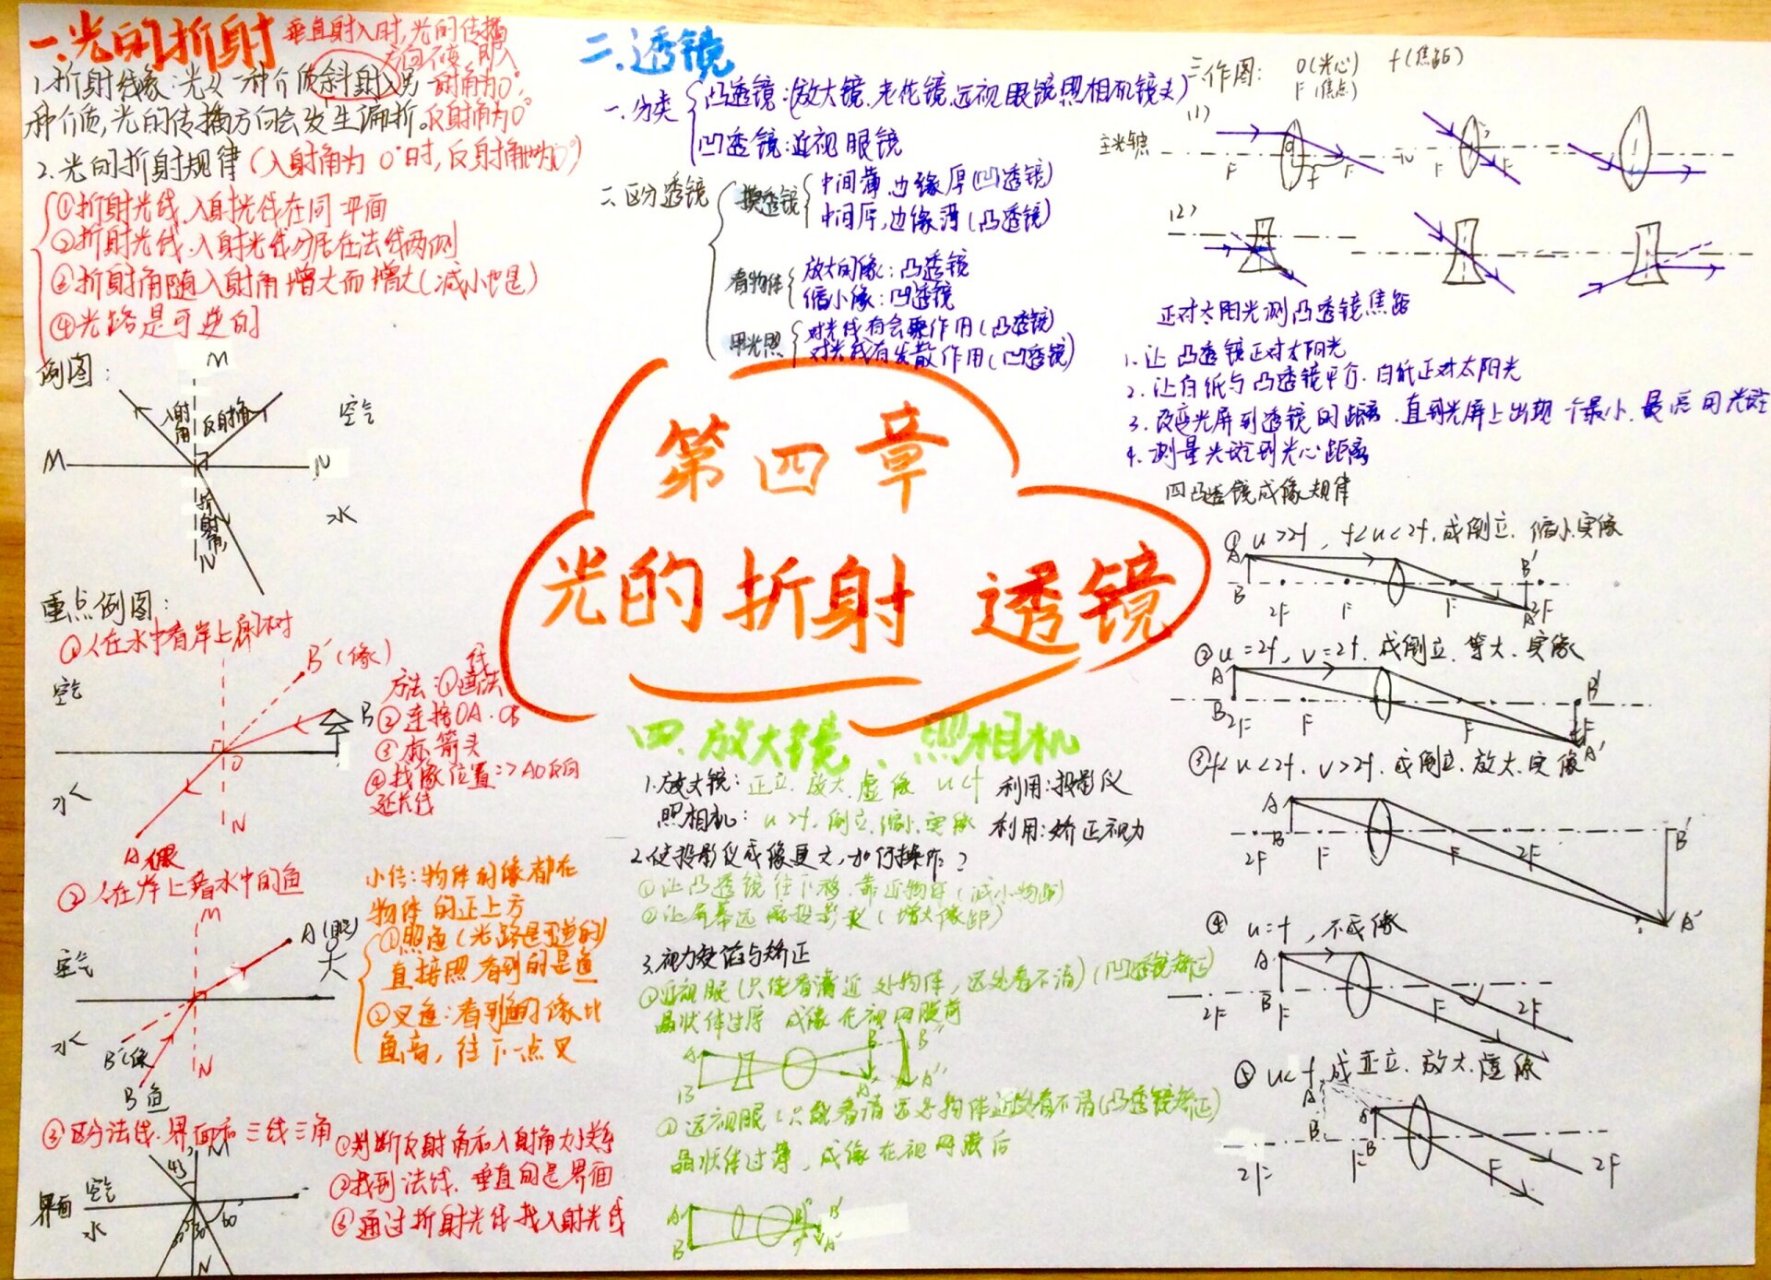 一.光的折射
垂直射入时,光的传播
方向不变
1.折射线象:光从一种介质斜射入另
射角为0°.
种介质,光的传播方向会发生偏折。
反射角为0°
2.光的折射规律(入射角为 0°时,反射角也为0°)
①折射光线、入射光线在同 平面
②折射光线、入射光线分居在法线两侧
③折射角随入射角增大而增大(减小也是)
④光路是可逆的
例图:
M
入射角
反射角
空气
M
N
水
折射角
N
重点例图:
①人在水中看岸上的树
B′(像)
空气
B
O
水
N
A 眼
方法:①画法线
②连接OA.OB
③标箭头
④找像位置=>AO反向
延长线
②人在岸上看水中的鱼
M
A(眼)
空气
水
B′像
N
B 鱼
小结:物体的像都在
物体的正上方
①照鱼(光路是可逆的)
直接照看到的是鱼
②叉鱼:看到鱼的像比
鱼高,往下一点叉
③区分法线.界面和三线三角
M
45°
空气
界面
水
60°
30°
N
①判断反射角和入射角大小关系
②找到法线.垂直的是界面
③通过折射光线找入射光线
二.透镜
一.分类
凸透镜:(放大镜.老花镜.远视眼镜.照相机镜头)
凹透镜:近视眼镜
二.区分透镜
摸透镜
中间薄.边缘厚(凹透镜)
中间厚,边缘薄(凸透镜)
看物体
放大的像:凸透镜
缩小像:凹透镜
用光照
对光线有会聚作用(凸透镜)
对光线有发散作用(凹透镜)
第四章
光的折射 透镜
三.作图:
O(光心)
f(焦距)
F(焦点)
(1)
主光轴
F
f
F
F
F
(2)
正对太阳光测凸透镜焦距
1.让 凸透镜正对太阳光
2.让白纸与凸透镜平行.白纸正对太阳光
3.改变光屏到透镜的距离.直到光屏上出现 个最小.最亮的光斑
4.测量光斑到光心距离
四凸透镜成像规律
①u>2f,f<u<2f.成倒立.缩小.实像
A
B
2F
F
F
B′
2F
A′
②u=2f,v=2f.成倒立.等大.实像
A
B
2F
F
F
B′
2F
A′
③f<u<2f.v>2f.成倒立.放大.实像
A
B
2F
F
F
2F
B′
A′
④ u=f,不成像
A
B
2F
F
F
2F
⑤ u<f.成正立.放大.虚像
A′
B′
A
B
2F
F
F
2F
四.放大镜、照相机
1.放大镜:正立.放大.虚像 u<f 利用:投影仪
照相机:u>2f.倒立.缩小.实像 利用:矫正视力
2.使投影仪成像更大,如何操作?
①让凸透镜往下移.靠近物体(减小物距)
②让屏幕远离投影仪(增大像距)
3.视力受损与矫正
①近视眼(只能看清近处物体,远处看不清)(凹透镜矫正)
晶状体过厚 成像在视网膜前
A
B
B′
A′
B″
A″
②远视眼(只能看清远处物体近处看不清)(凸透镜矫正)
晶状体过薄,成像在视网膜后
A
B
B′
A′